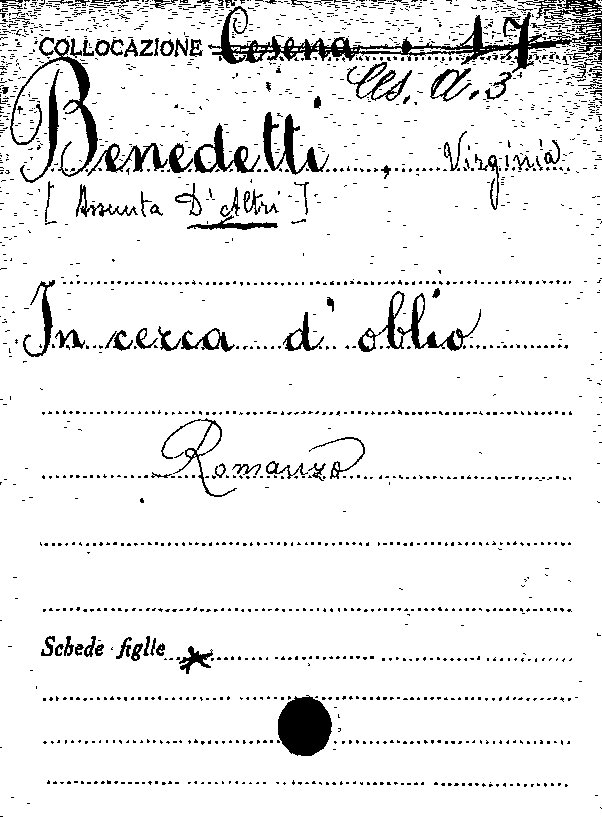 COLLOCAZIONE Cesena . 17
Ces. A. 3
Benedetti, Virginia
[Assunta D'Altri]
In cerca d'oblio
Romanzo
Schede figlie